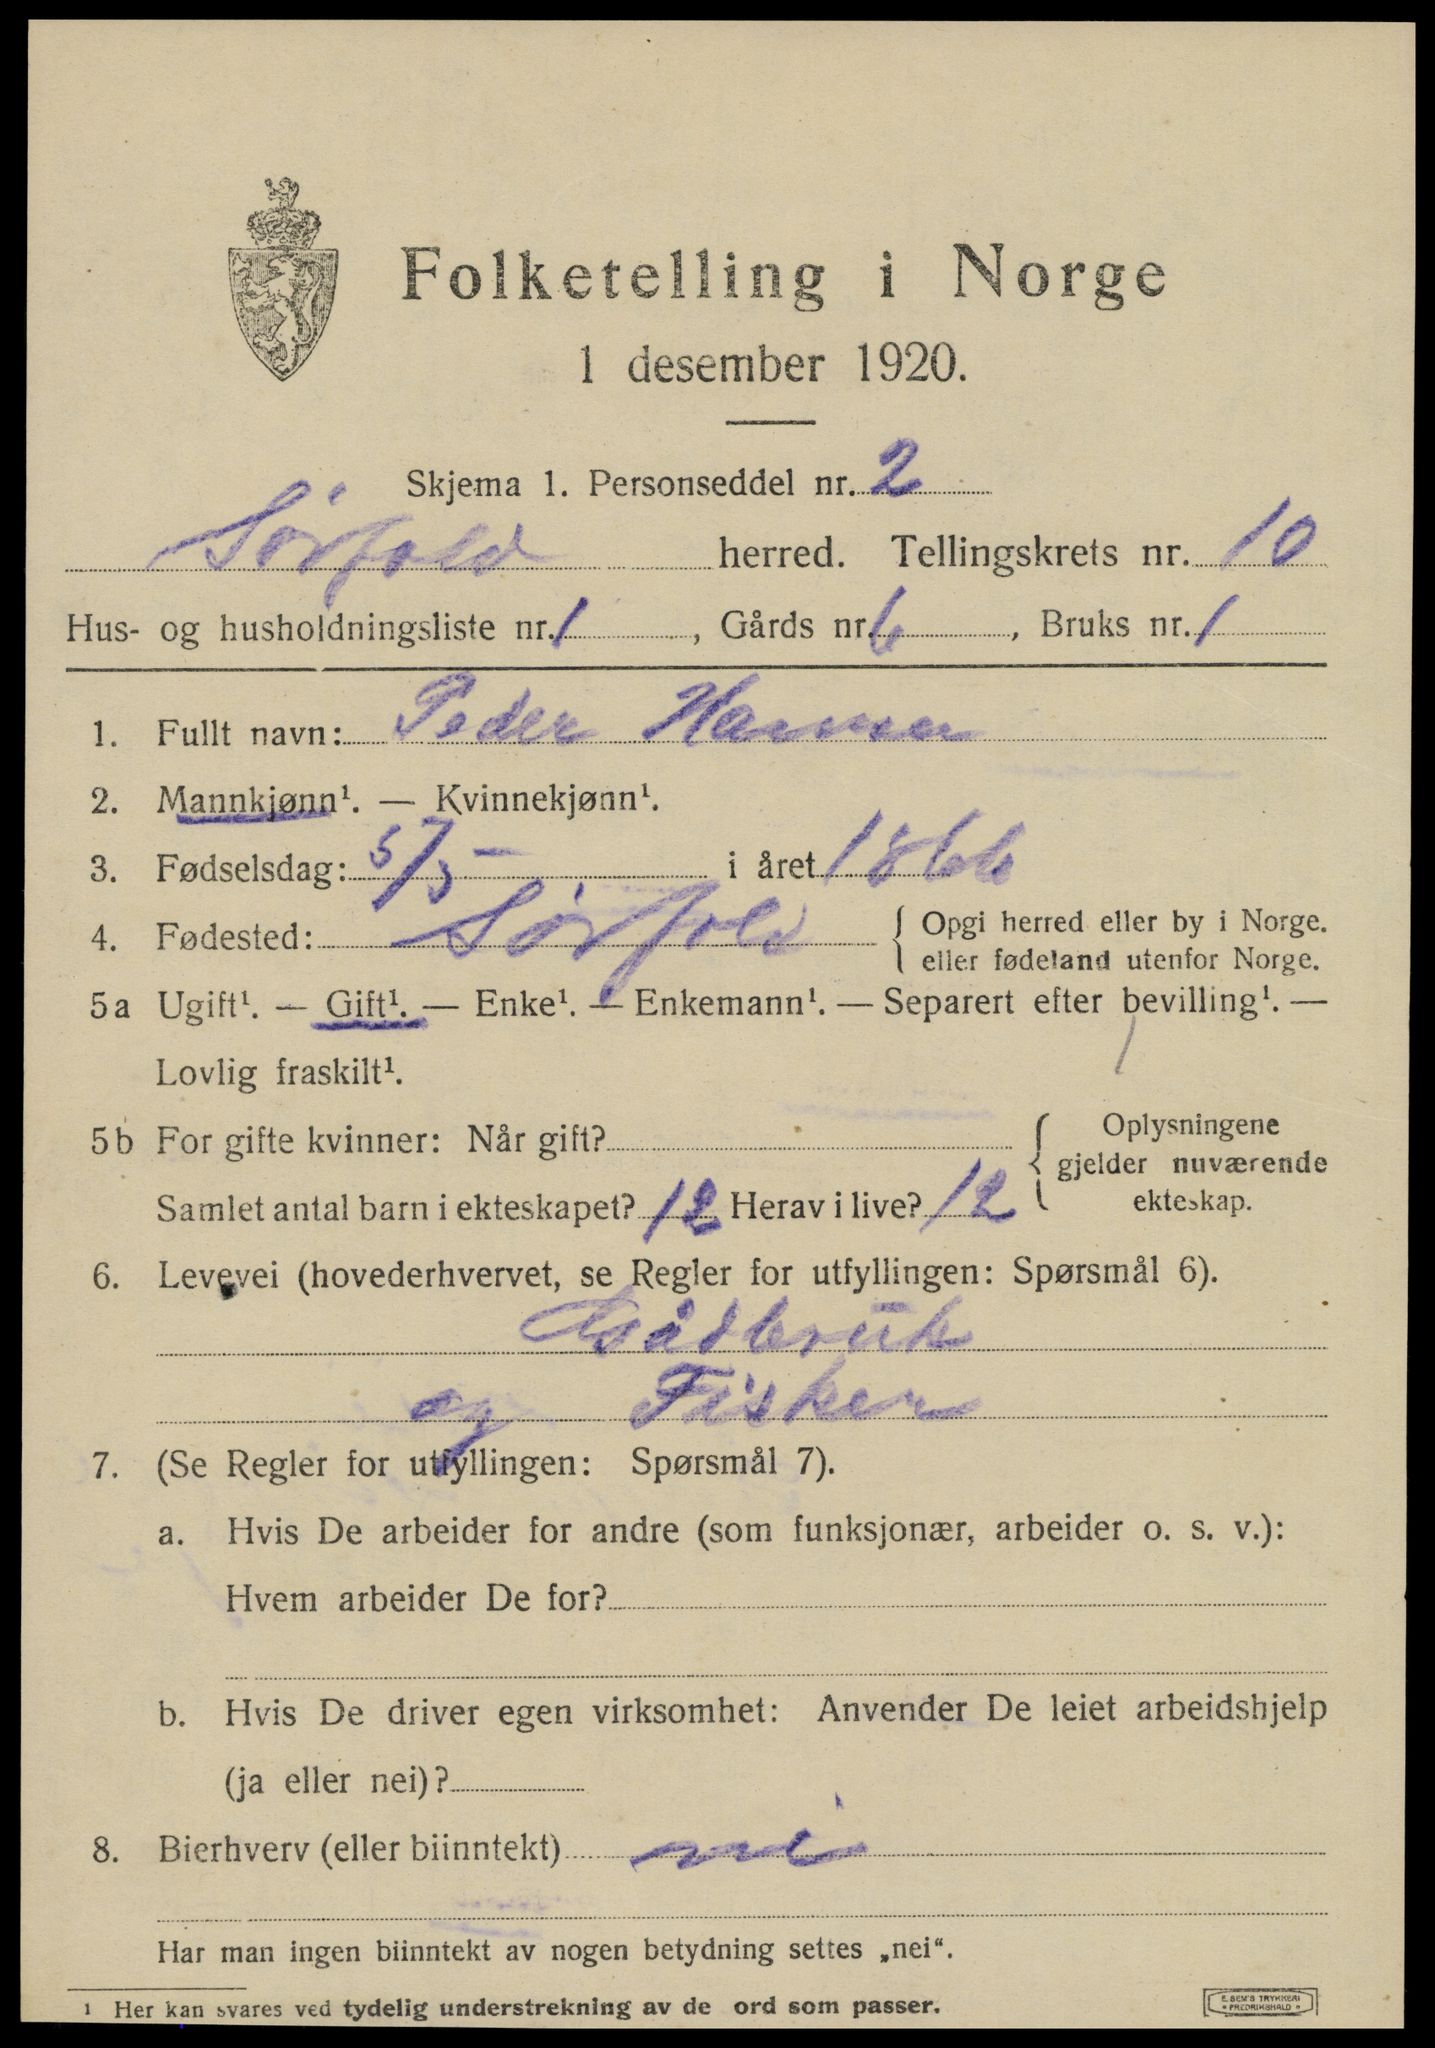 Folketelling i Norge
1 desember 1920.
Skjema 1. Personseddel nr. 2
Sörfold herred. Tellingskrets nr. 10
Hus- og husholdningsliste nr. 1, Gårds nr. 6, Bruks nr. 1
1. Fullt navn: Peder Hansen
2. Mannkjønn¹. — Kvinnekjønn¹.
3. Fødselsdag: 5/5 - i året 1866
4. Fødested: Sörfold { Opgi herred eller by i Norge.
eller fødeland utenfor Norge.
5a Ugift¹. — Gift¹. — Enke¹. — Enkemann¹. — Separert efter bevilling¹. —
Lovlig fraskilt¹.
5b For gifte kvinner: Når gift? { Oplysningene
gjelder nuværende
Samlet antal barn i ekteskapet? 12 Herav i live? 12 ekteskap.
6. Levevei (hovederhvervet, se Regler for utfyllingen: Spørsmål 6).
Gårdbruk
og Fisker
7. (Se Regler for utfyllingen: Spørsmål 7).
a. Hvis De arbeider for andre (som funksjonær, arbeider o. s. v.):
Hvem arbeider De for?
b. Hvis De driver egen virksomhet: Anvender De leiet arbeidshjelp
(ja eller nei)?
8. Bierhverv (eller biinntekt) nei
Har man ingen biinntekt av nogen betydning settes „nei“.
¹ Her kan svares ved tydelig understrekning av de ord som passer.
E. SEM'S TRYKKERI
FREDRIKSHALD